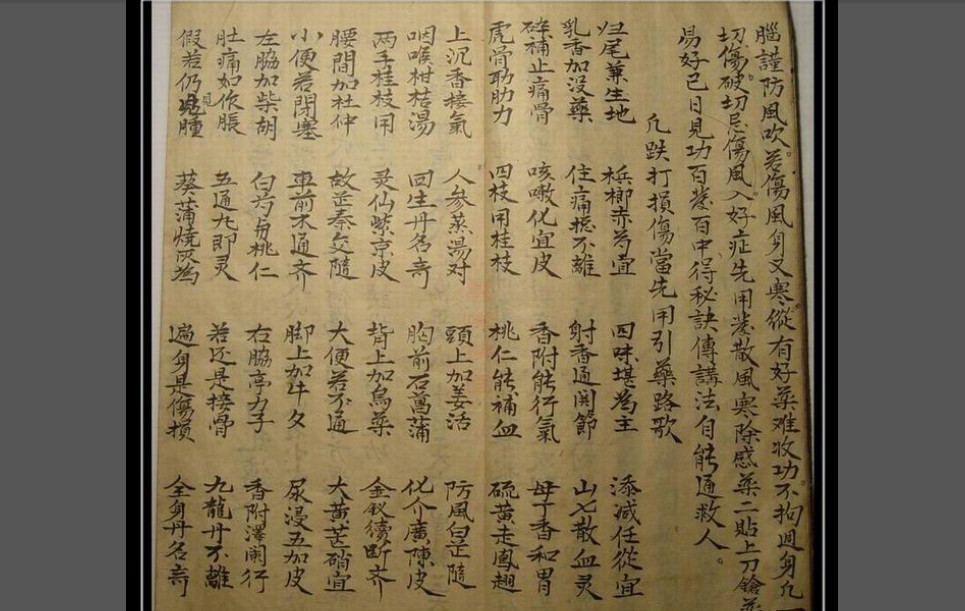 腦謹防風吹。若傷風身又寒從有好藥难收功不拘週身凡
切傷破切忌傷風入好症先用发散風寒除感藥二貼上刀鎗药
易好已日見功百发百中得秘訣傳講法自能通救人。
凡跌打損傷當先用引藥路歌
归尾兼生地 梹榔赤芍宜 四味堪為主 添减任從宜
乳香加没藥 住痛總不離 射香通関節 山七散血灵
碎補止痛骨 咳嗽化宜皮 香附能行氣 母丁香和胃
虎骨助肋力 四枝用桂枝 桃仁能補血 硫黄走鳳翅
上沉香接氣 人參蒸湯对 頭上加姜活 防風白芷隨
咽喉柑桔湯 回生丹名奇 胸前石菖蒲 化介廣陳皮
两手桂枝用 灵仙紫京皮 背上加烏藥 金釵續断齐
腰間加杜仲 故芷秦交隨 大便若不通 大黄芒硝宜
小便若閉塞 車前木通齐 脚上加牛夕 尿浸五加皮
左脇加柴胡 白芍與桃仁 右脇亭力子 香附澤闌行
肚痛如作脹 五通九即灵 若还是接骨 九龍丹不離
假若仍見腫 葵蒲燒灰為 遍身是傷損 全身丹名奇